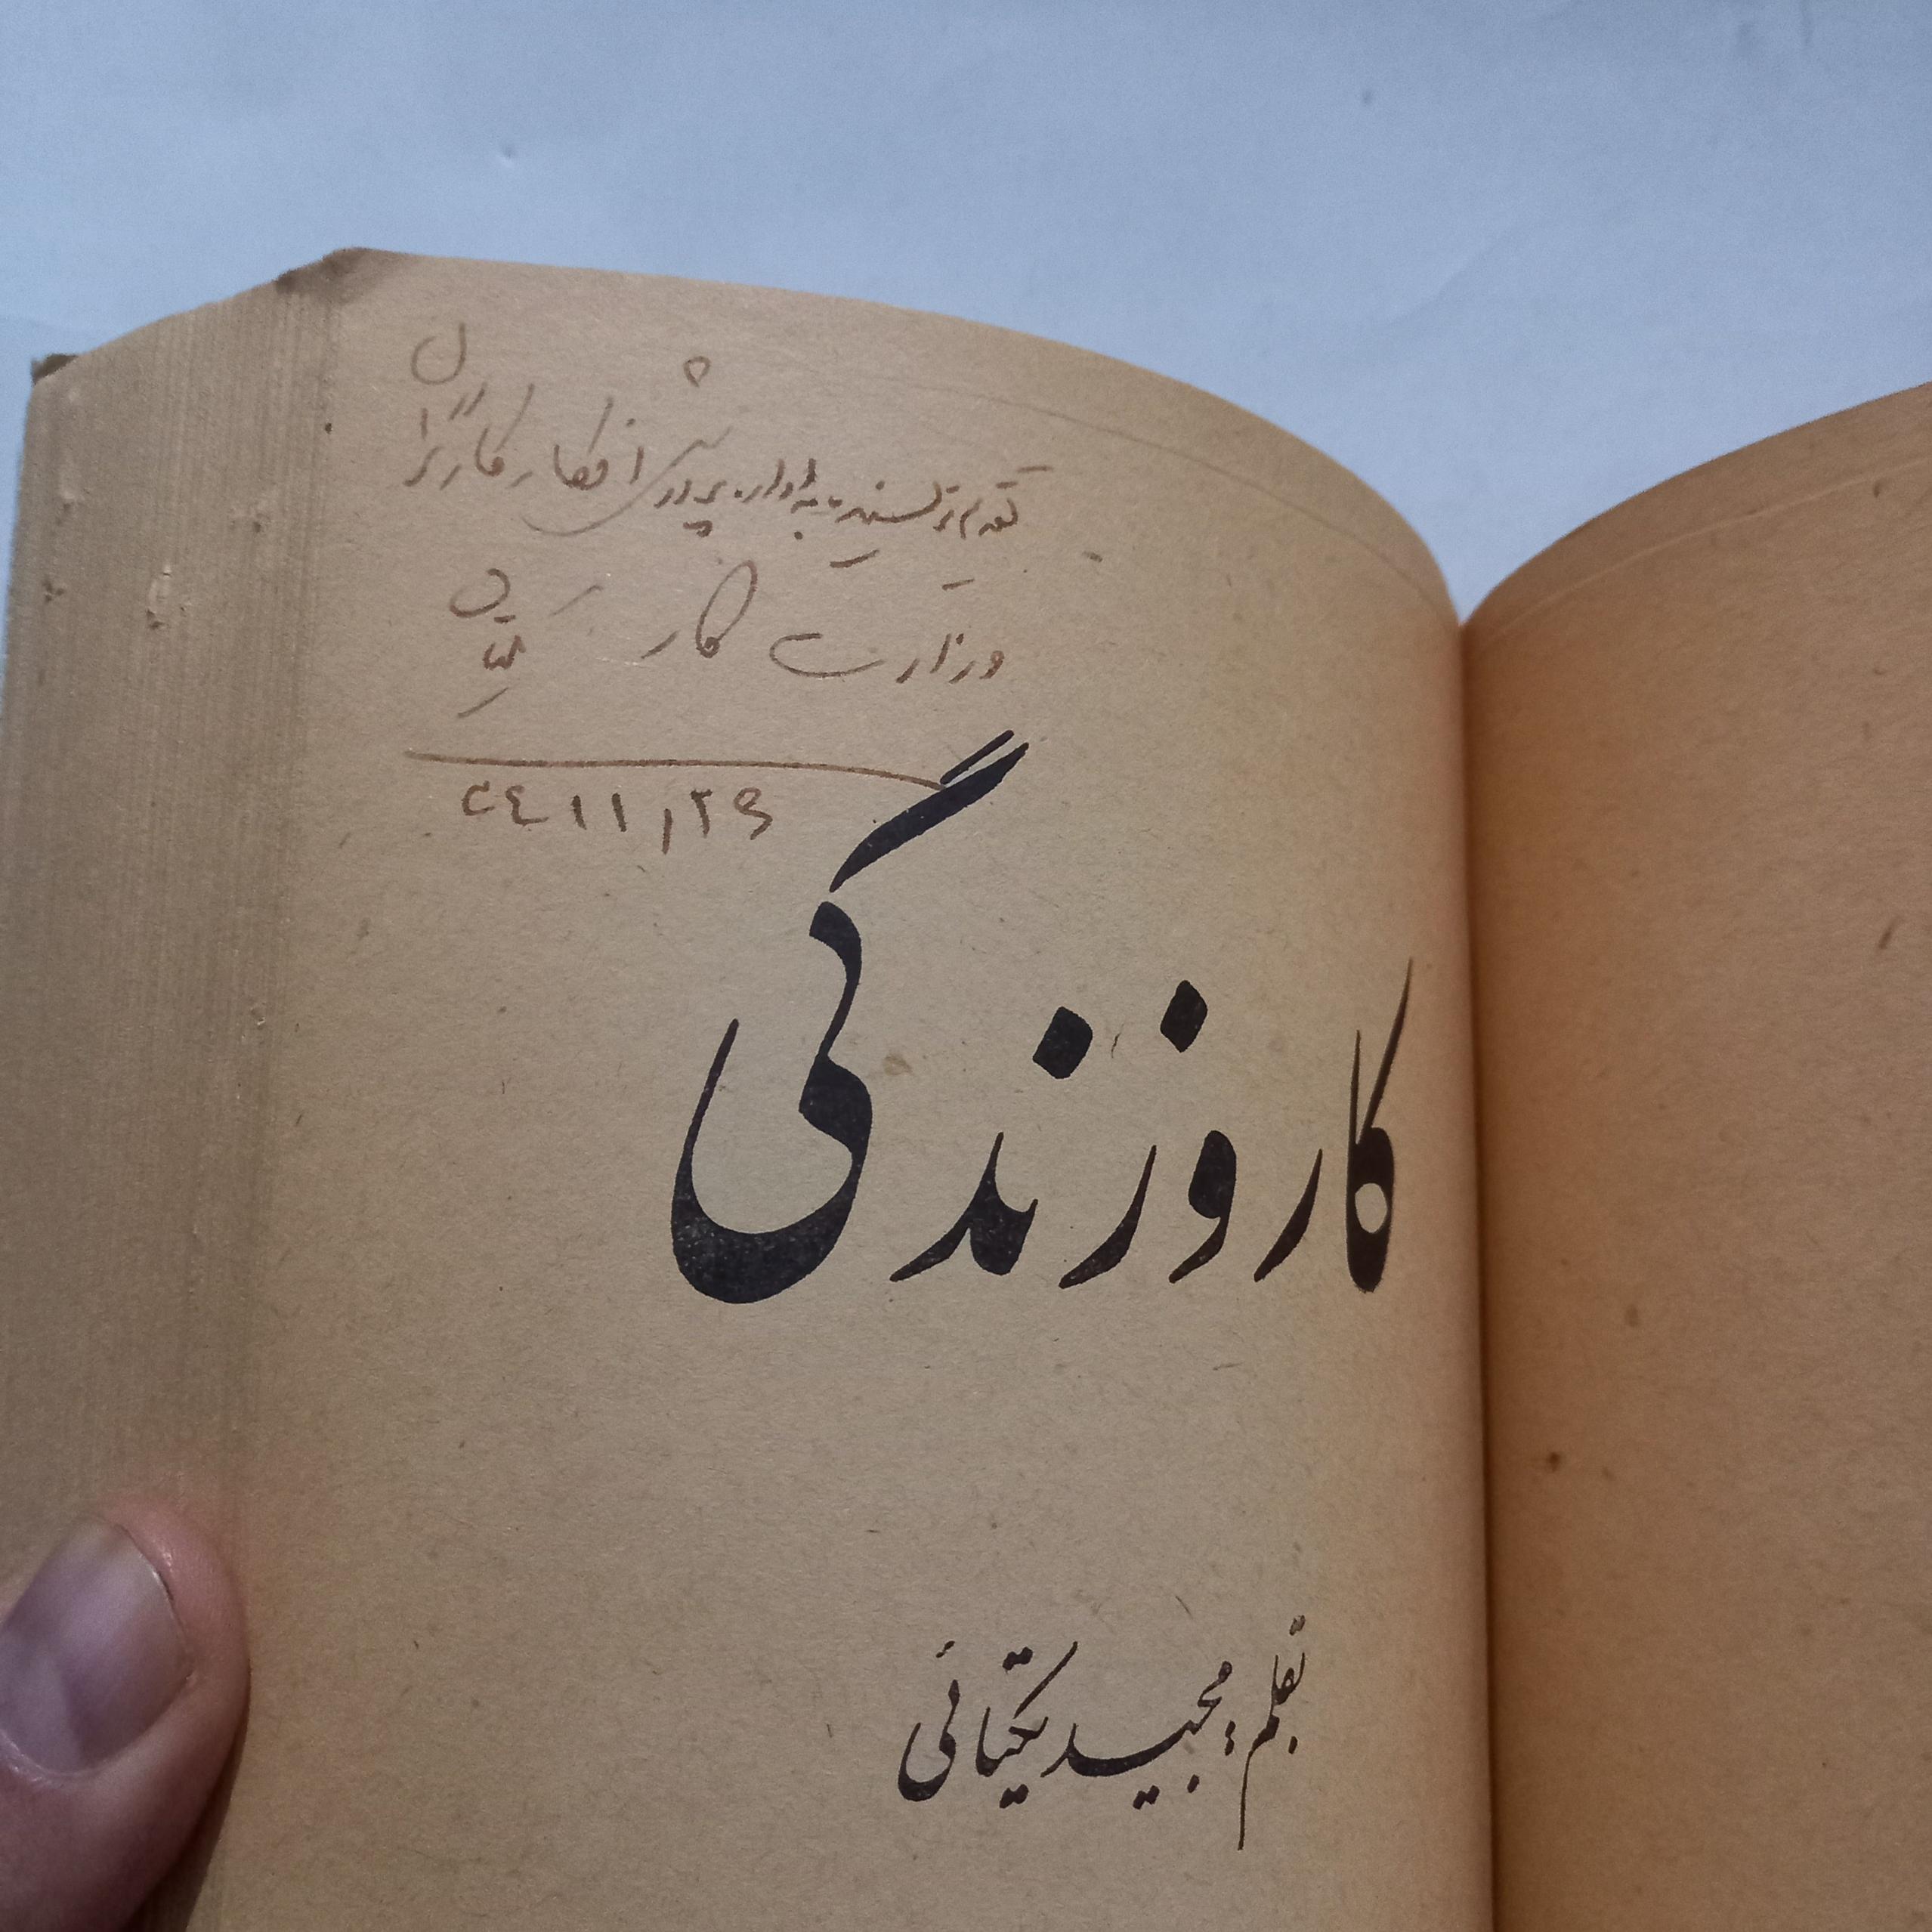 تقدیم نویسنده به اداره پرورش افکار کارگران
وزارت کار
کار و زندگی
بقلم: مجید یکتائی